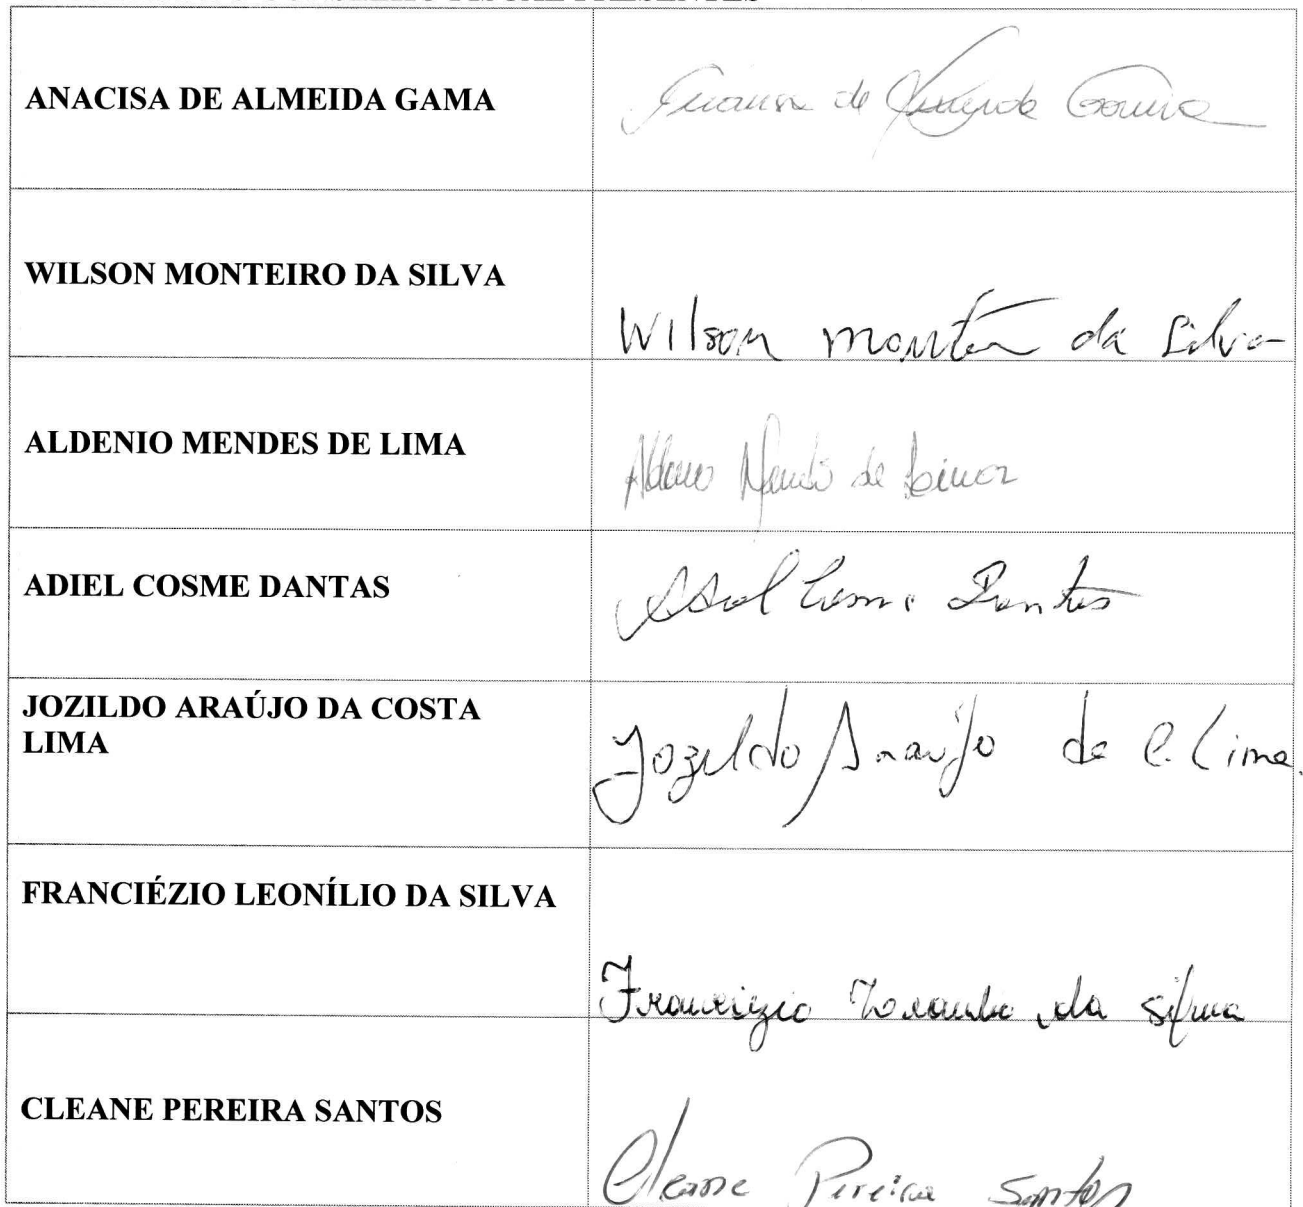 CONSELHO FISCAL PRESENTES
ANACISA DE ALMEIDA GAMA
de Gama
WILSON MONTEIRO DA SILVA
Wilson Monteiro da Silva
ALDENIO MENDES DE LIMA
Aldenio Mendes de Lima
ADIEL COSME DANTAS
Adiel Cosme Dantas
JOZILDO ARAÚJO DA COSTA
LIMA
Jozildo Araújo da C. Lima.
FRANCIÉZIO LEONÍLIO DA SILVA
da Silva
CLEANE PEREIRA SANTOS
Cleane Pereira Santos